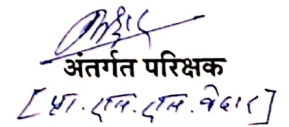 अंतर्गत परिक्षक
[प्रा. एस. एस. बेदार]